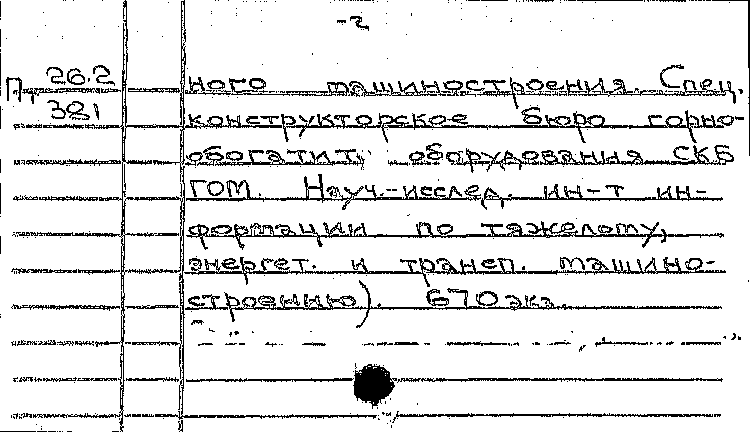 -2
Пт 26.2 ного машиностроения. Спец.
381 конструкторское бюро горно-
обогатит. оборудования СКБ
ГОМ. Науч.-исслед. ин-т ин-
формации по тяжелому,
энергет. и трансп. машино-
строению). 670 экз.